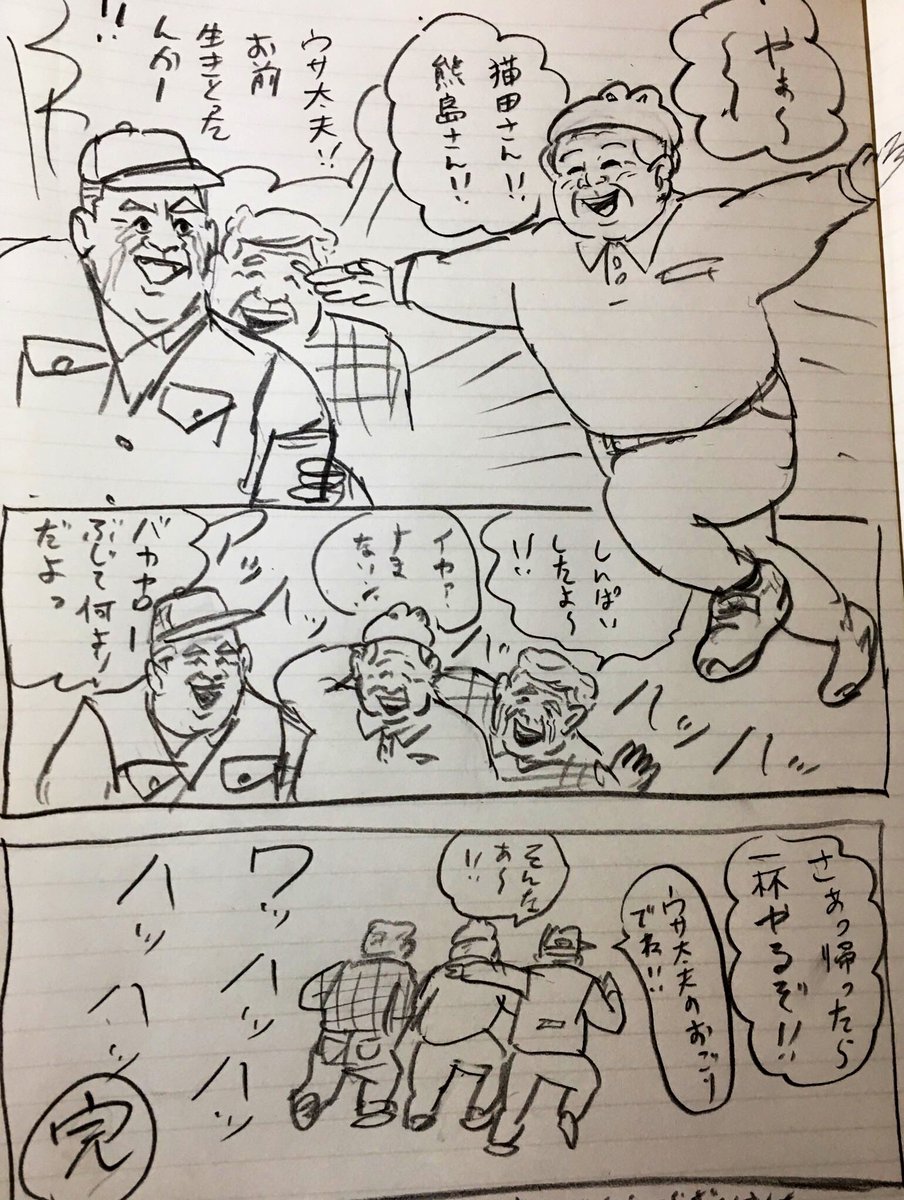 やぁ〜
〜!
猫田さん!!
熊島さん!!
ウサ太夫!!
お前
生きとった
んかー
!!
しんぱい
したよ〜
!!
イヤァ
すま
ない!
バカヤロー
ぶじて何より
だよっ
アッ
ハッ
ハッ
ハッ
さぁっ帰ったら
一杯やるぞ!!
ウサ太夫のおごり
でね!!
そんな
あ〜
!!
ワッハッハッ
ハッハッ
完